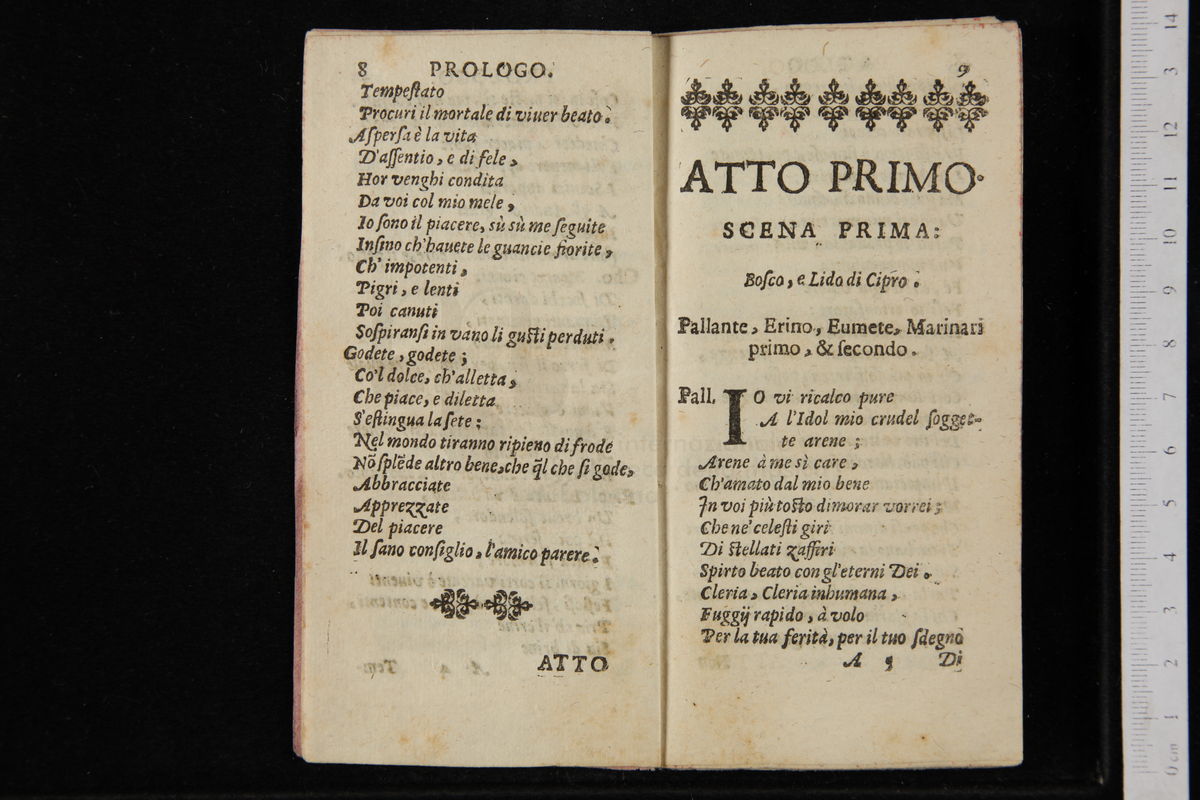 8 PROLOGO.
Tempeſtato
Procuri il mortale di viuer beato.
Aſperſa è la vita
D'aſſentio, e di fele,
Hor venghi condita
Da voi col mio mele,
Io ſono il piacere, sù sù me ſeguite
Inſino ch'hauete le guancie fiorite,
Ch'impotenti,
Pigri, e lenti
Poi canuti
Soſpiranſi in vano li guſti perduti.
Godete, godete;
Co'l dolce, ch'alletta,
Che piace, e diletta
S'eſtingua la ſete:
Nel mondo tiranno ripieno di frode
Nō ſplēde altro bene, che q̄l che ſi gode,
Abbracciate
Apprezzate
Del piacere
Il ſano conſiglio, l'amico parere.
ATTO
9
ATTO PRIMO.
SCENA PRIMA:
Boſco, e Lido di Cipro.
Pallante, Erino, Eumete, Marinari
primo, & ſecondo.
Pall. IO vi ricalco pure
A l'Idol mio crudel ſogget-
te arene;
Arene à me sì care,
Ch'amato dal mio bene
In voi più toſto dimorar vorrei;
Che ne' celeſti giri
Di ſtellati zaffiri
Spirto beato con gl'eterni Dei.
Cleria, Cleria inhumana,
Fuggij rapido, à volo
Per la tua ferità, per il tuo ſdegno
A 5 Di
14
13
12
11
10
9
8
7
6
5
4
3
2
1
0 cm